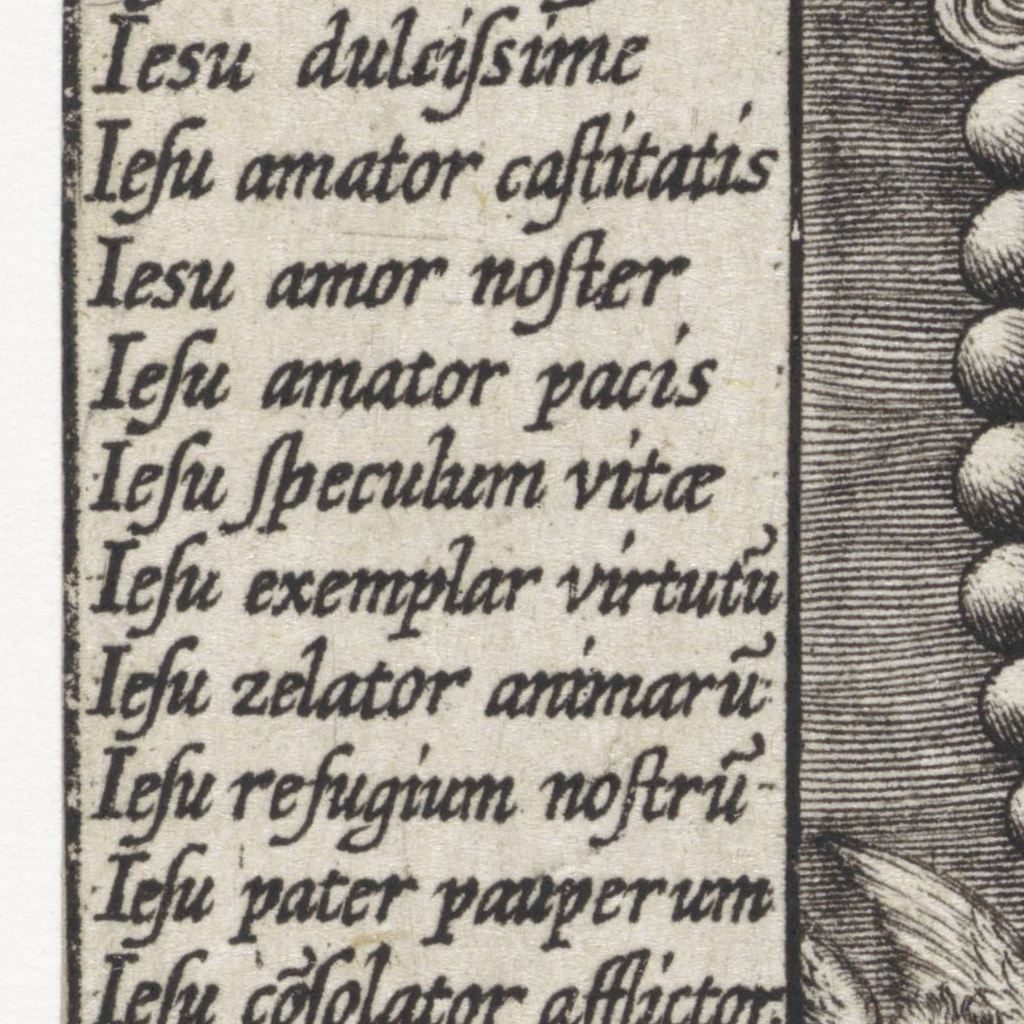 Iesu dulciſsime
Ieſu amator caſtitatis
Iesu amor noſter
Ieſu amator pacis
Ieſu ſpeculum vitæ
Ieſu exemplar virtutū
Ieſu zelator animarū
Ieſu refugium noſtrū
Ieſu pater pauperum
Ieſu cõſolator afflictor